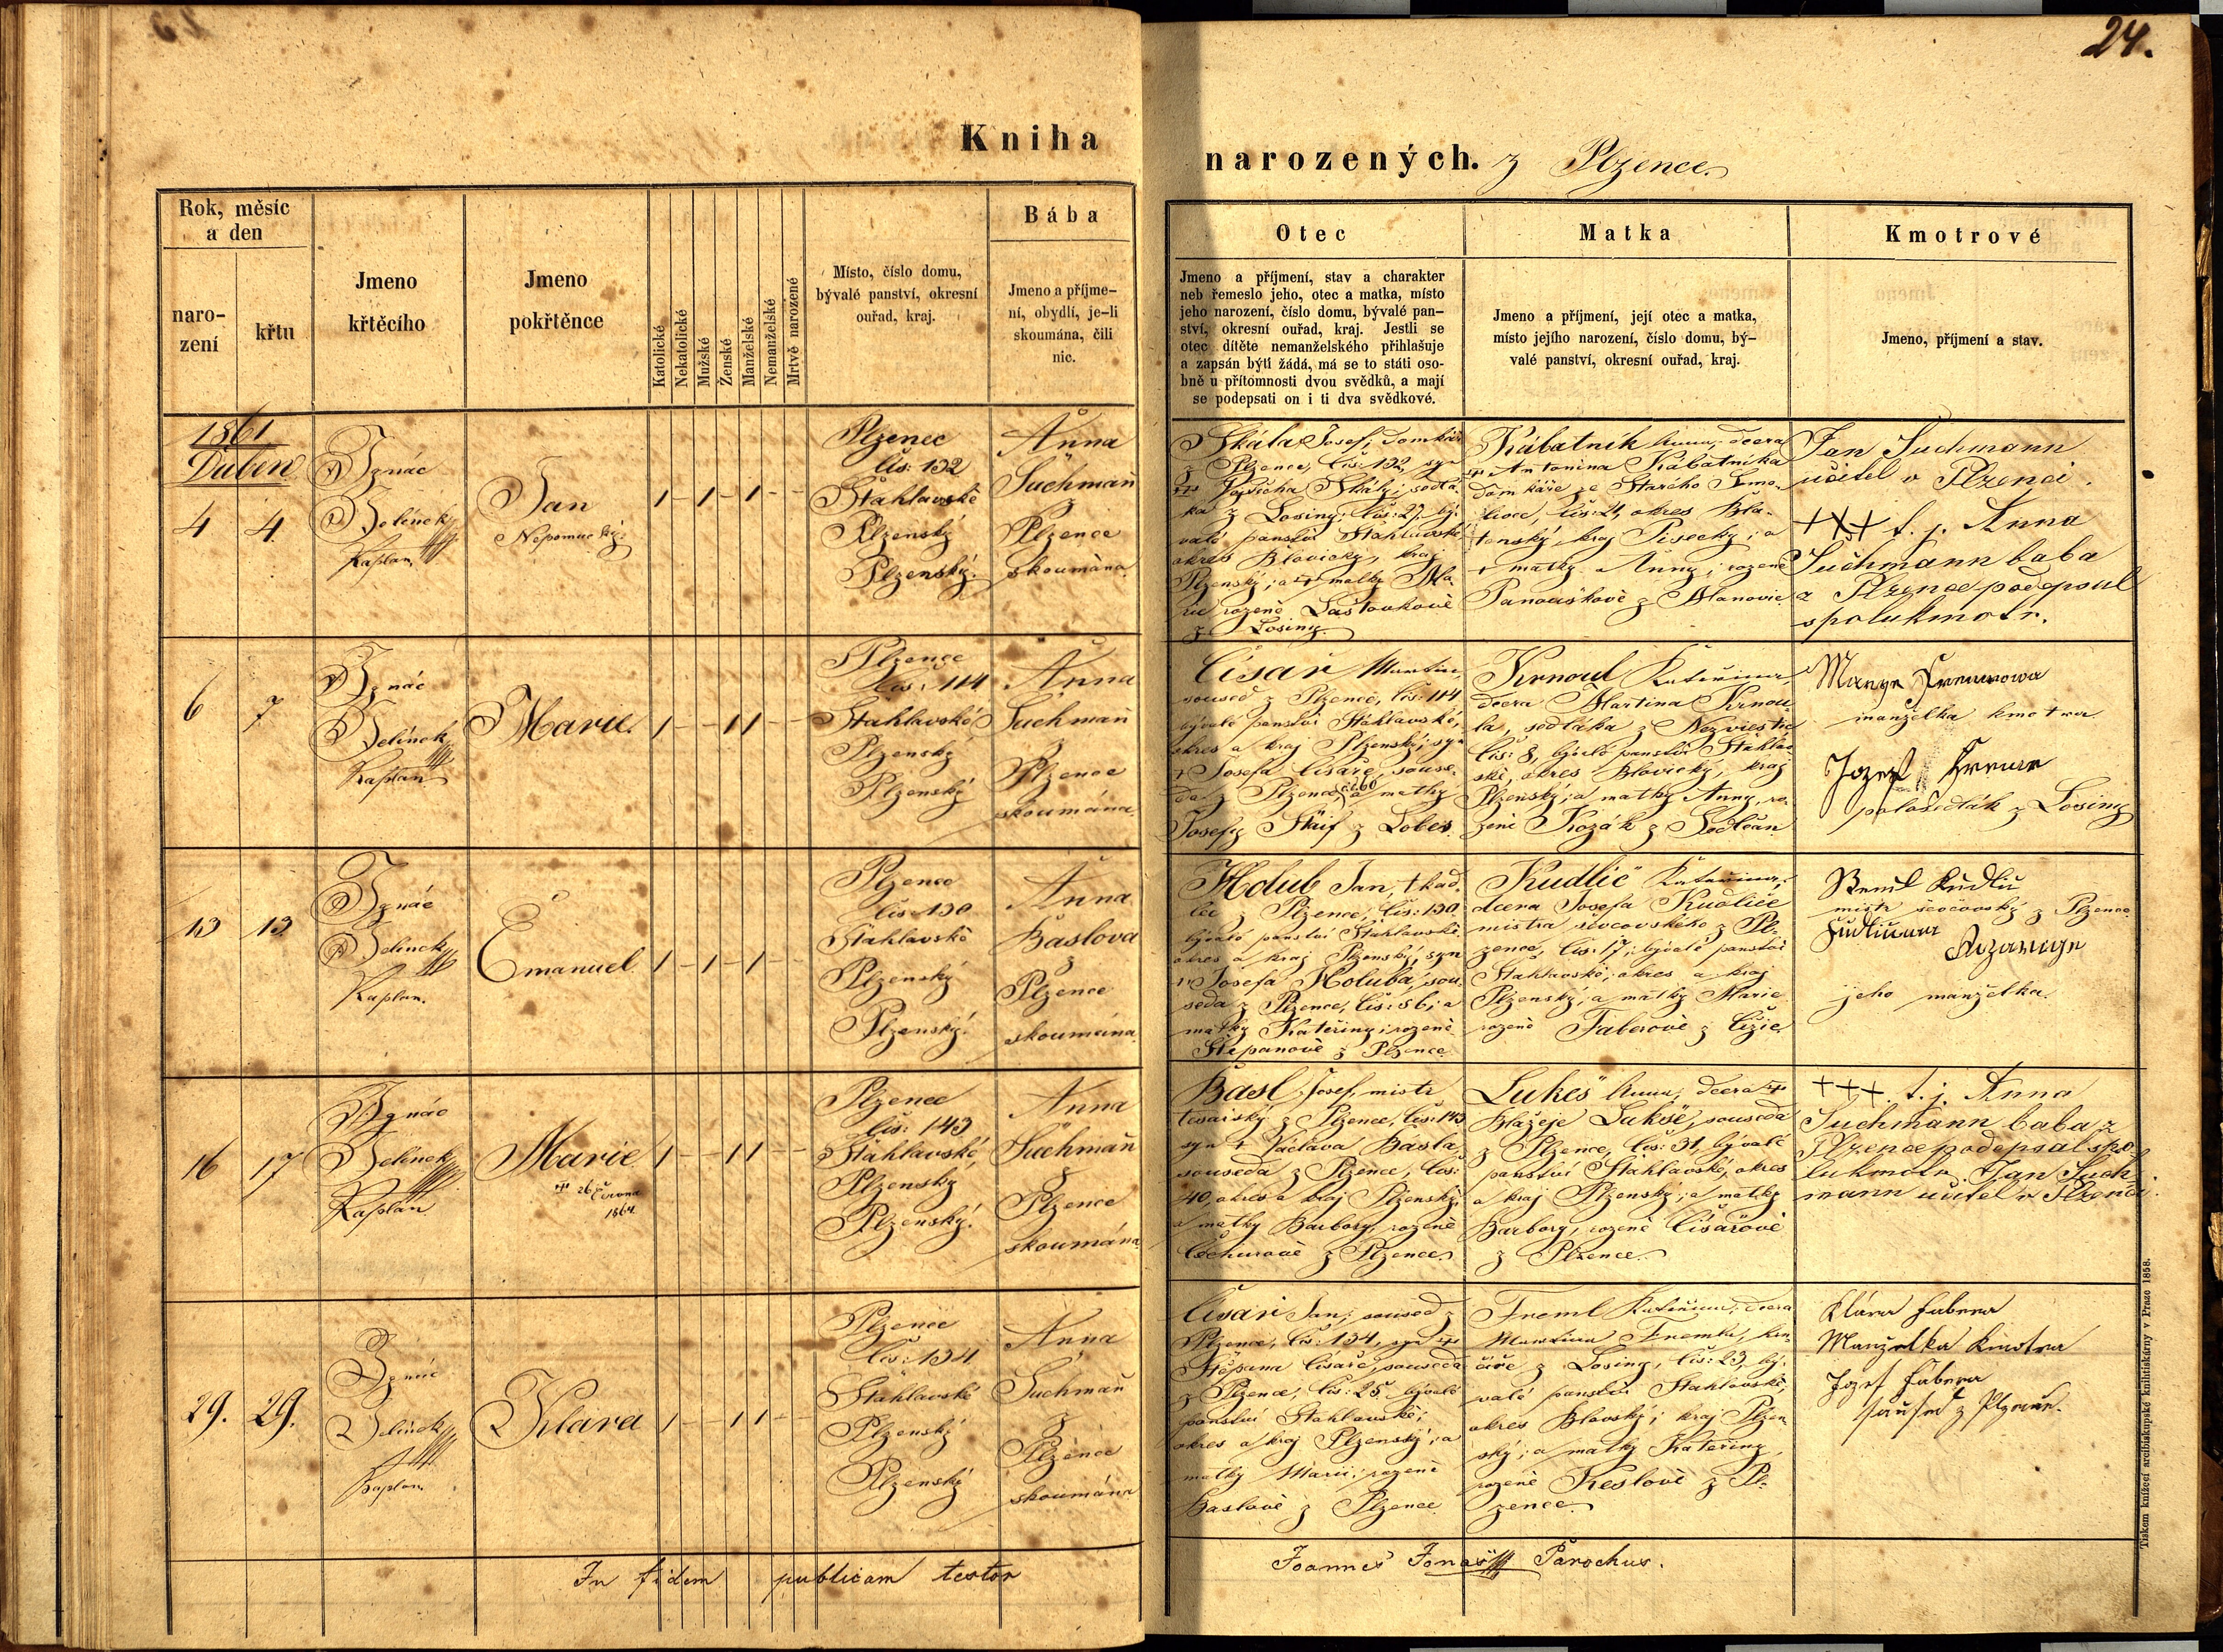 24.
Kniha
narozených. z Plzence
Rok, měsíc
a den
naro-
zení
křtu
Jmeno
křtěcího
Jmeno
pokřtěnce
Katolické
Nekatolické
Mužské
Ženské
Manželské
Nemanželské
Mrtvě narozené
Místo, číslo domu,
bývalé panství, okresní
ouřad, kraj.
Bába
Jmeno a příjme-
ní, obydlí, je-li
skoumána, čili
nic.
Otec
Jmeno a příjmení, stav a charakter
neb řemeslo jeho, otec a matka, místo
jeho narození, číslo domu, bývalé pan-
ství, okresní ouřad, kraj. Jestli se
otec dítěte nemanželského přihlašuje
a zapsán býti žádá, má se to státi oso-
bně u přítomnosti dvou svědků, a mají
se podepsati on i ti dva svědkové.
Matka
Jmeno a příjmení, její otec a matka,
místo jejího narození, číslo domu, bý-
valé panství, okresní ouřad, kraj.
Kmotrové
Jmeno, příjmení a stav.
1861
Duben
4
4.
Ignác
Jelínek
Kaplan
Jan
Nepomucký
1 - 1 - 1 - -
Plzenec
čís: 132
Štáhlavské
Plzenský
Plzenský.
Anna
Suchmañ
z
Plzence
skoumána.
Skála Josef, domkář
z Plzence, čís: 132, syn
Vojtěcha Skály, sedlá-
ka z Losiny, čís: 27, bý-
valé panství Štáhlavské,
okres Blovický, kraj
Plzenský; a matky Ma-
rie rozené Laštovkové
z Losiny.
Kabátník Anna, dcera
Antonína Kabátníka
domkáře ze Starého Smo-
livce, čís: 21, okres Bla-
tenský, kraj Písecký; a
matky Anny, rozené
Panouškové z Mlanovic
Jan Suchmann
učitel v Plzenci.
+++ t. j. Anna
Suchmann baba
z Plzence podepsal
spolukmotr.
6
7
Ignác
Jelínek
Kaplan
Marie
1 - - 1 1 - -
Plzence
čís: 114
Štahlavské
Plzenský
Plzenský
Anna
Suchmañ
z
Plzence
skoumána.
Císař Martin,
soused z Plzence, čís: 114
bývalé panství Štáhlavské,
okres a kraj Plzenský; syn
+ Josefa Císaře, souse-
da z Plzence č. 60 a matky
Josefy Štrif z Lobes.
Krnoul Kateřina,
dcera Martina Krnou-
la, sedláka z Nezvěstic
čís: 8, bývalé panství Štáhlav-
ské, okres Blovický, kraj
Plzenský; a matky Anny, ro-
zené Kozák z Sedlčan
manželka kmotra
Jozef
polosedlák z Losiny
13
13.
Ignác
Jelínek
Kaplan.
Emanuel
1 - 1 - 1 - -
Plzence
čís: 130
Štahlavské
Plzenský
Plzenský.
Anna
Baslova
z
Plzence
skoumána
Holub Jan, tkad-
lec z Plzence, čís: 130
bývalé panství Štahlavské
okres a kraj Plzenský, syn
+ Josefa Holuba, sou-
seda z Plzence, čís: 56; a
matky Kateřiny; rozené
Štěpanové z Plzence
Kudlič Kateřina,
dcera Josefa Kudliče
mistra ševcovského z Pl-
zence, čís: 17, bývalé panství
Štahlavské, okres a kraj
Plzenský; a matky Marie
rozené Faberové z Čižic
mistr ševcovský z Plzence
jeho manželka.
16
17
Ignác
Jelínek
Kaplan
Marie
+ 26 Června
1864
1 - - 1 1 - -
Plzence
čís: 143
Štáhlavské,
Plzenský
Plzenský.
Anna
Suchmañ
z
Plzence
skoumána.
Basl Josef, mistr
tesařský z Plzence, čís: 143
syn + Václava Básla,
souseda z Plzence, čís:
40, okres a kraj Plzenský;
a matky Barbory, rozené
z Plzence
Lukeš Anna, dcera +
Blažeje Lukše, souseda
z Plzence, čís: 31, bývalé
panství Štahlavské, okres
a kraj Plzenský; a matky
Barbory, rozené Císařové
z Plzence.
+++. t. j. Anna
Suchmann baba z
Plzence podepsal spo-
lukmotr Jan Such-
mann učitel v Plzenci.
29.
29.
Ignác
Jelínek
Kaplan
Klára
1 - - 1 1 - -
Plzence
čís: 134
Štahlavské
Plzenský
Plzenský
Anna
Suchmañ
z
Plzence
skoumána
Císař Jan, soused z
Plzence, čís: 134, syn +
Štěpana Císaře, souseda
z Plzence, čís: 25 bývalé
panství Štahlavské;
okres a kraj Plzenský; a
matky Marie; rozené
Baslové z Plzence.
Freml Kateřina; dcera
Martina Fremla,
z Losiny, čís: 23, bý-
valé panství Štahlavské,
okres Blovský; kraj Plzen-
ský; a matky Kateřiny
rozené Keslové z Pl-
zence.
Klára Fabera
Manželka Kmotra
Jozef Fabera
z Plzence.
In fidem publicam testor
Joannes Jonáš Parochus.
Tiskem knížecí arcibiskupské knihtiskárny v Praze 1858.